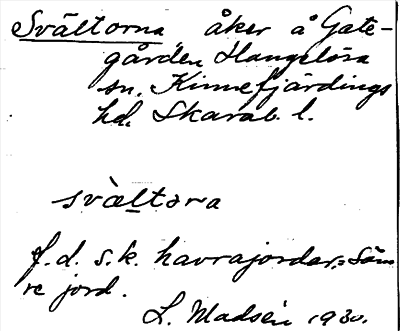 Svältorna åker å Gate-
gården Hangelösa
sn. Kinnefjärdings
hd. Skarab. l.
svàltơrna
f.d. s.k. havrajordar,: säm
re jord.
L. Madsén 1930.